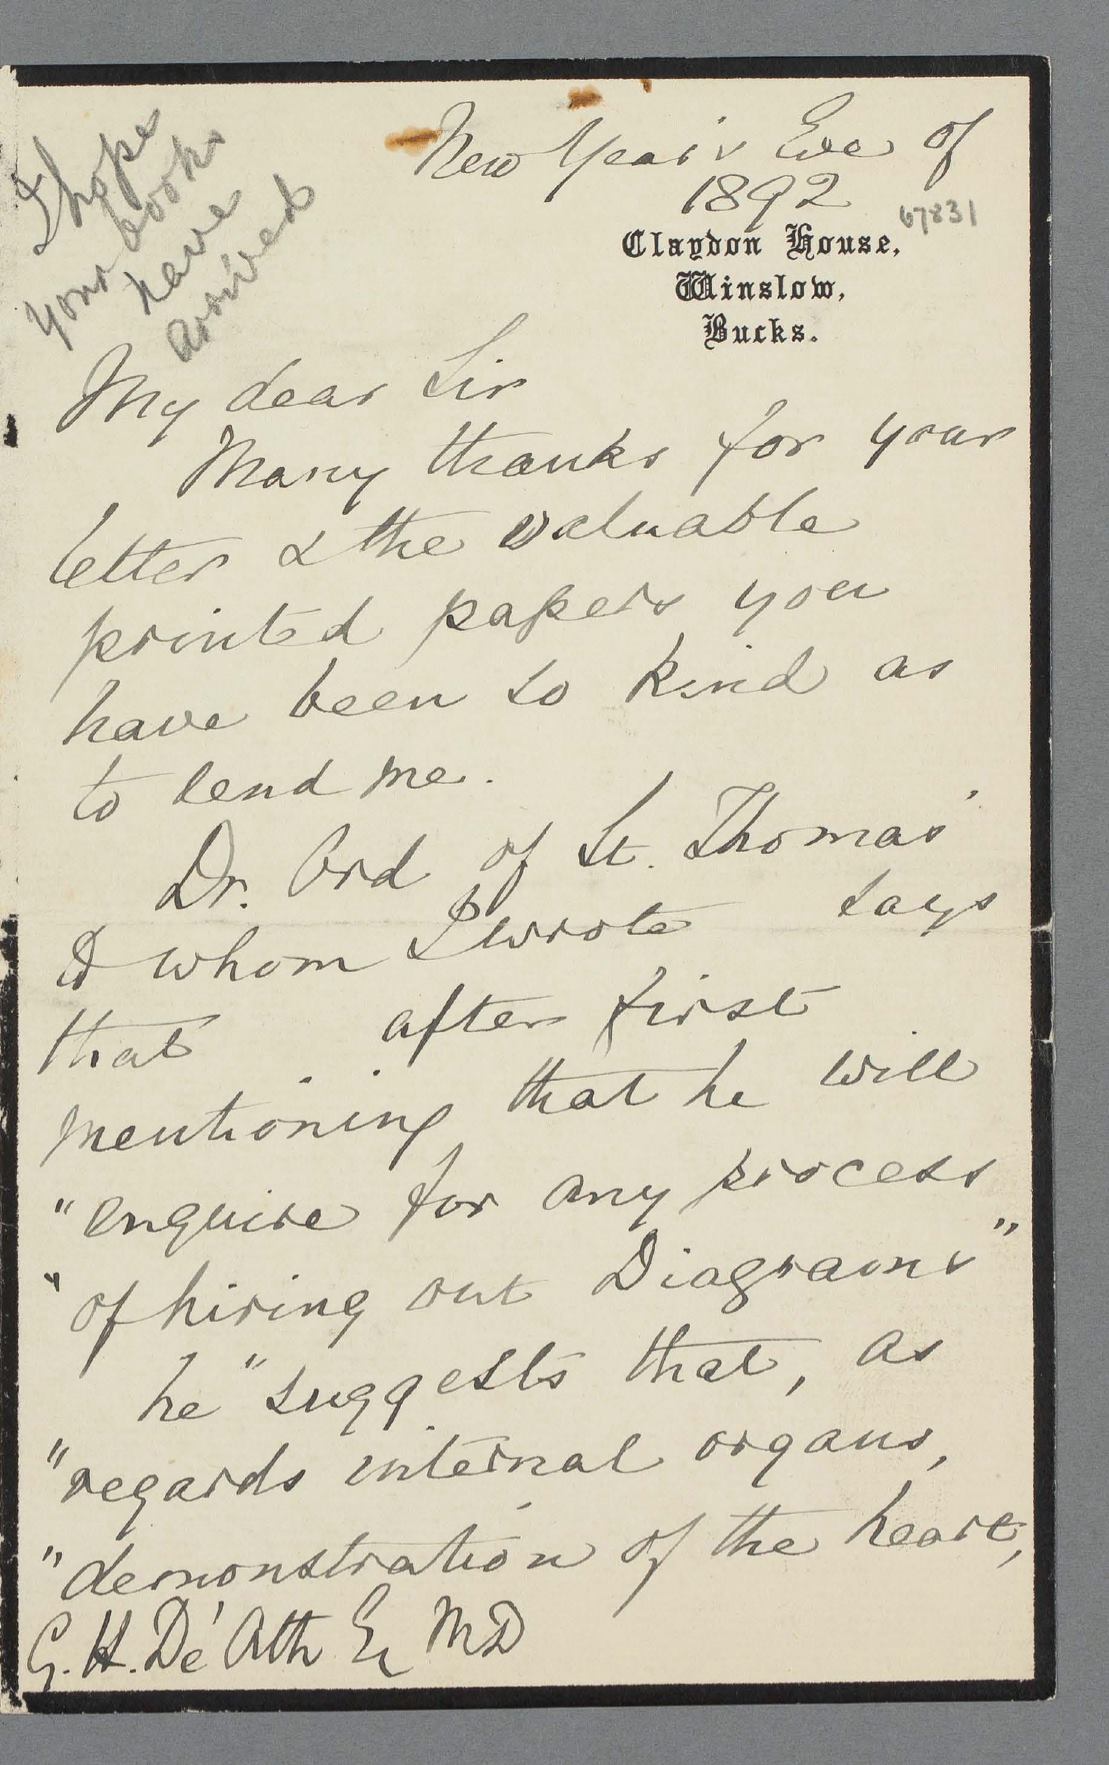 I hope
your books
have
arrived
New Year's Eve of
1892
67831
Claydon House,
Winslow,
Bucks.
My dear Sir
Many thanks for your
letter & the valuable
printed papers you
have been so kind as
to lend me.
Dr. Ord of St. Thomas'
to whom I wrote says
that after first
mentioning that he will
"enquire for any process
"of hiring out Diagrams"
he "suggests that, as
"regards internal organs,
"demonstration of the heart,
G.H. De'Ath Esq MD